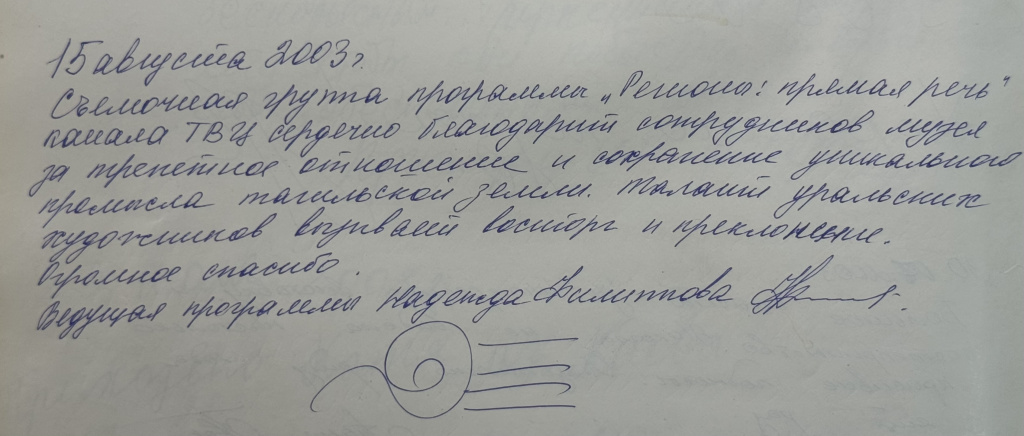 15 августа 2003 г.
Съемочная группа программы „Регионы: прямая речь"
канала ТВЦ сердечно благодарит сотрудников музея
за трепетное отношение и сохранение уникального
промысла тагильской земли. Талант уральских
художников вызывает восторг и преклонение.
Огромное спасибо.
Ведущая программы Надежда Филиппова